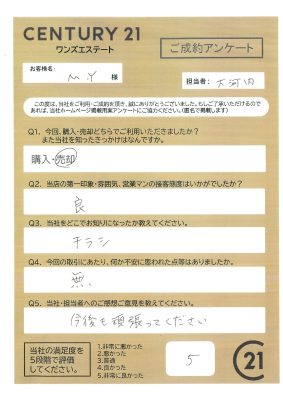 CENTURY 21
ワンズエステート
ご成約アンケート
お客様名:
M.Y 様
担当者: 大河内
この度は、当社をご利用・ご成約を頂き、誠にありがとうございました。もしご了承いただけるので
あれば、当社ホームページ掲載用アンケートにご協力ください。(匿名で掲載します)
Q1. 今回、購入・売却どちらでご利用いただきましたか?
また当社を知ったきっかけはなんですか。
購入・売却
Q2. 当店の第一印象・雰囲気、営業マンの接客態度はいかがでしたか?
良
Q3. 当社をどこでお知りになったか教えてください。
チラシ
Q4. 今回の取引にあたり、何か不安に思われた点等はありましたか。
無
Q5. 当社・担当者へのご感想ご意見を教えてください。
今後も頑張ってください
当社の満足度を
5段階で評価
してください。
1.非常に悪かった
2.悪かった
3.普通
4.良かった
5.非常に良かった
5
C21